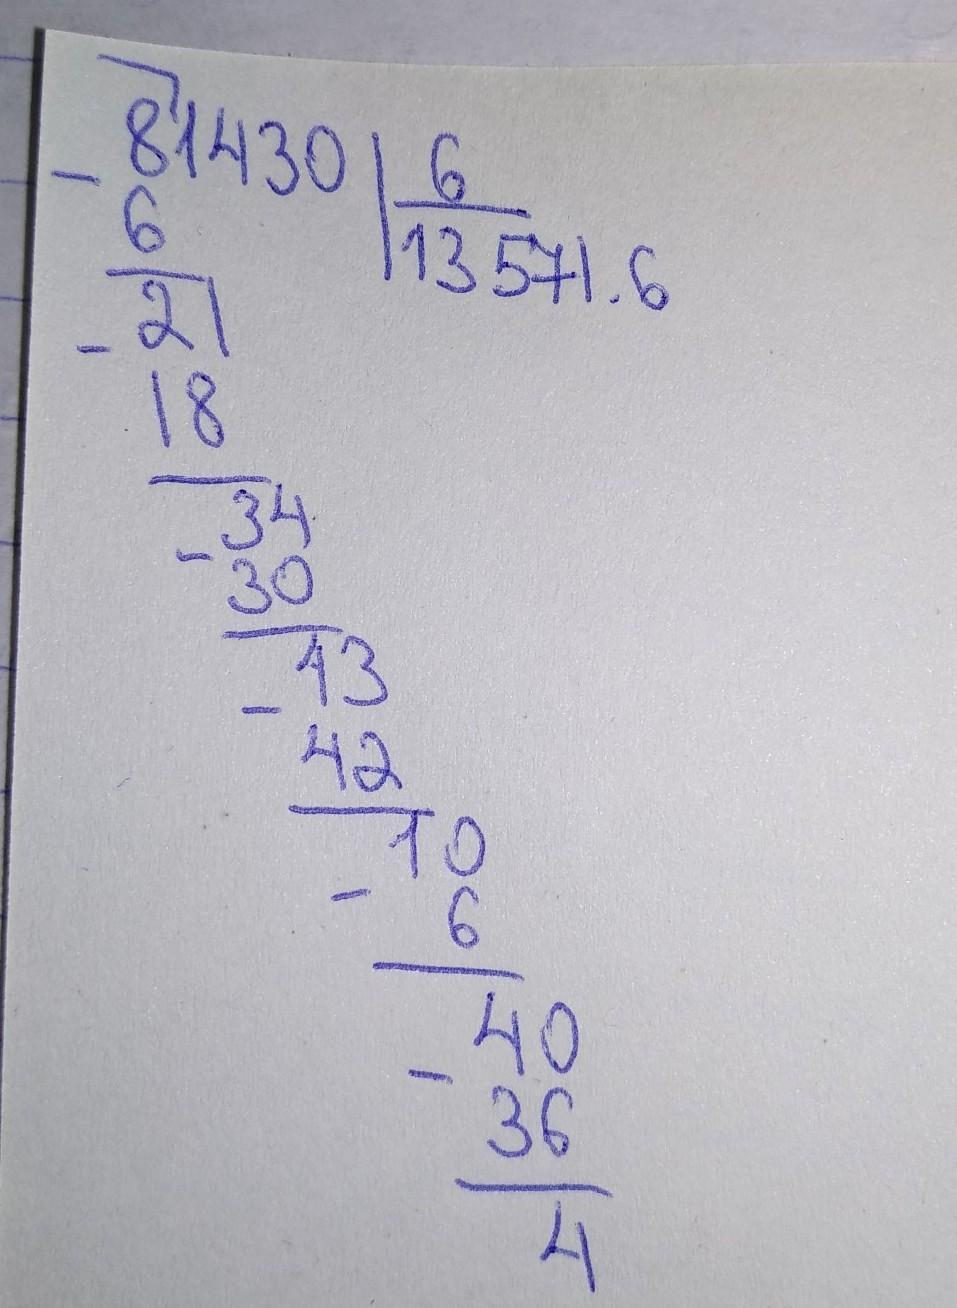 81430 | 6
- 6
13571.6
- 21
18
- 34
30
- 43
42
- 10
6
- 40
36
4